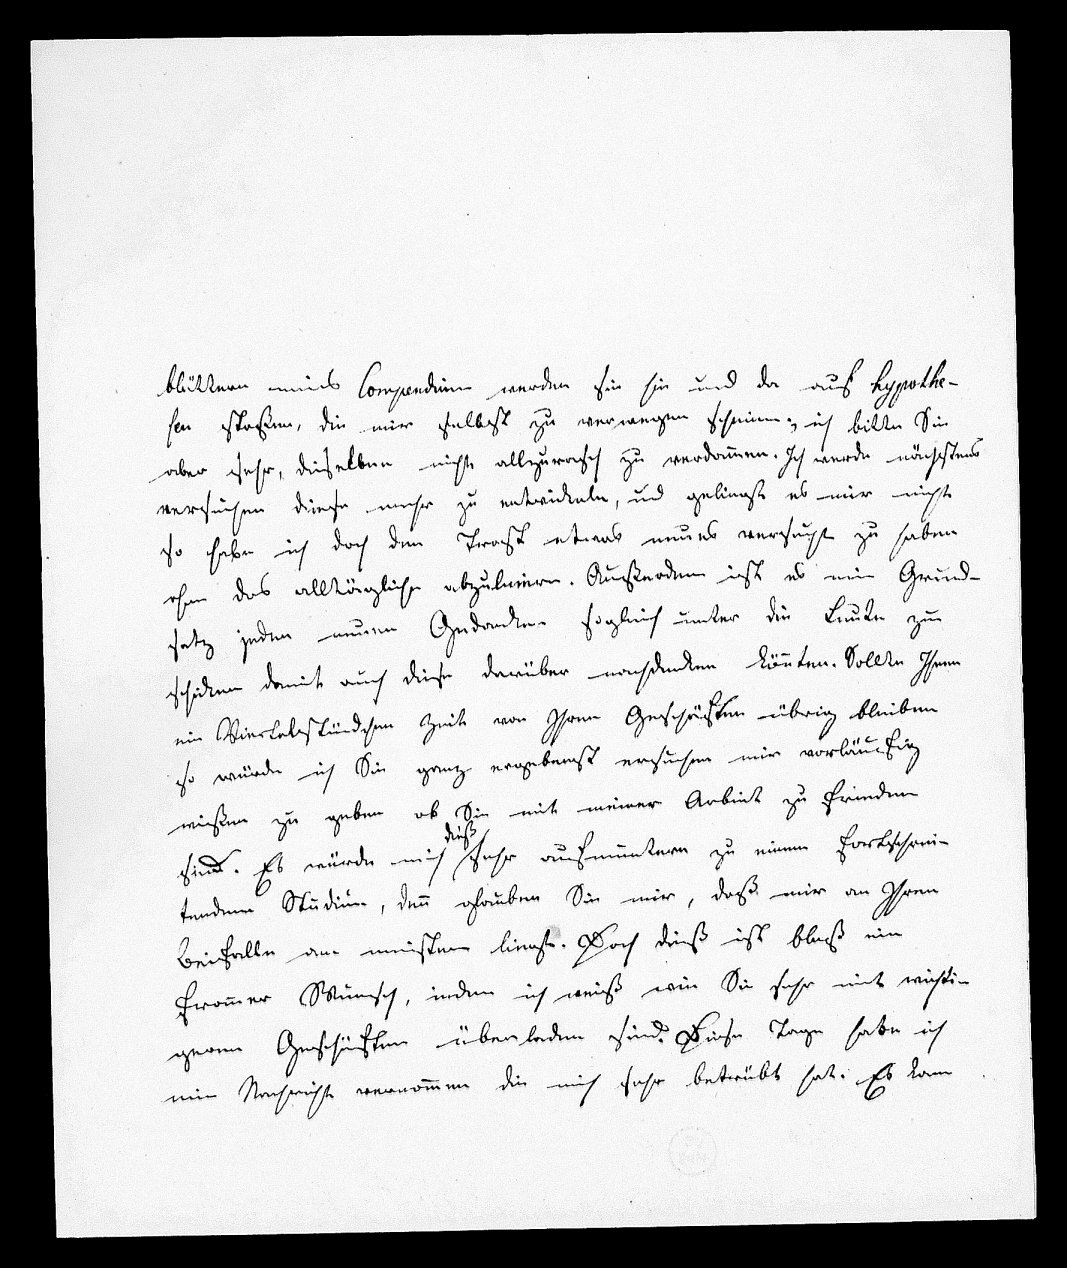 blättern meines Compendium werden sie hie und da auf Hypothe-
sen stoßen, die mir selbst zu verwegen scheinen; ich bitte Sie
aber sehr, dieselben nicht allzurasch zu verdam̄en. Ich werde nächstens
versuchen diese mehr zu entwickeln, und gelingt es mir nicht
so habe ich doch den Trost etwas neues versucht zu haben
ohne das alltägliche abzuleiern. Außerdem ist es mein Grund-
satz jeden neuen Gedanken sogleich unter die Leute zu
schicken damit auch diese darüber nachdenken kön̄ten. Sollte Ihnen
ein Viertelstündchen Zeit von Ihren Geschäften übrig bleiben
so würde ich Sie ganz ergebenst ersuchen mir vorläufig
wissen zu geben ob Sie mit meiner Arbeit zu frieden
sind. Es würde mich dieß sehr aufmuntern zu einem fortschrei-
tenden Studium, den̄ glauben Sie mir, daß mir an Ihrem
Beifalle am meisten liegt. Doch dieß ist bloß ein
from̄er Wunsch, indem ich weiß wie Sie sehr mit wichti-
geren Geschäften überladen sind. Diese Tage habe ich
eine Nachricht vernom̄en die mich sehr betrübt hat. Es kam